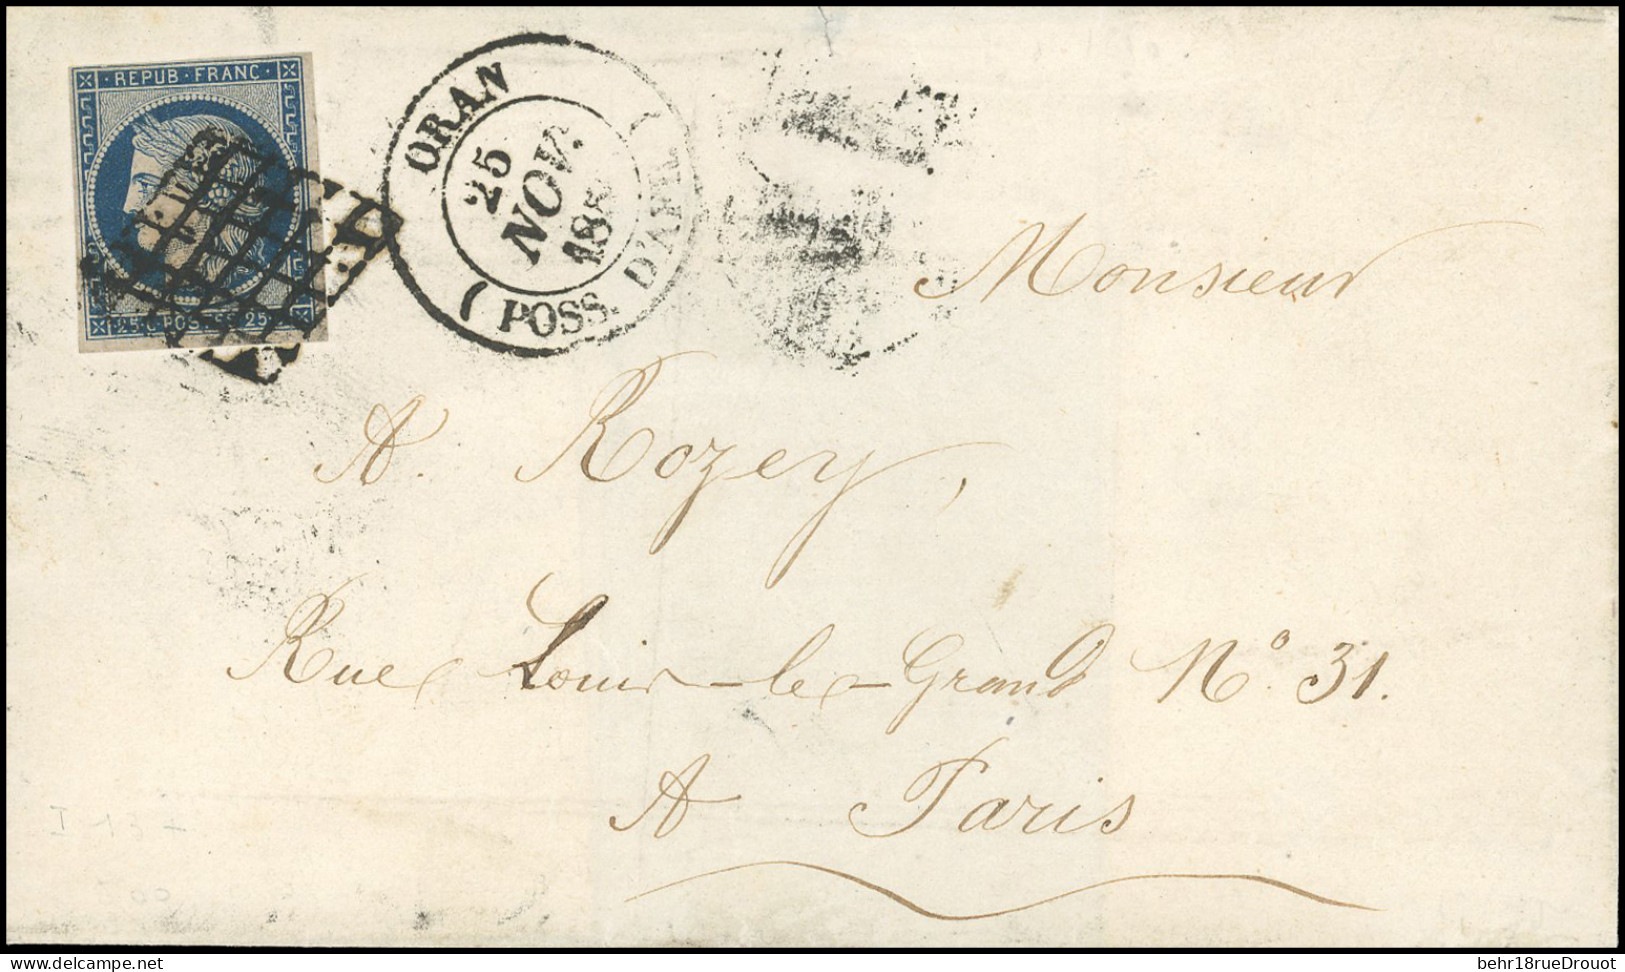 REPUB · FRANC ·
25 C POSTES 25
ORAN
25
NOV.
(POSS. D'AFR.)
Monsieur
A. Rozey,
Rue Louis-le-Grand N° 31.
A Paris
I 13 +
www.delcampe.net
behr18rueDrouot